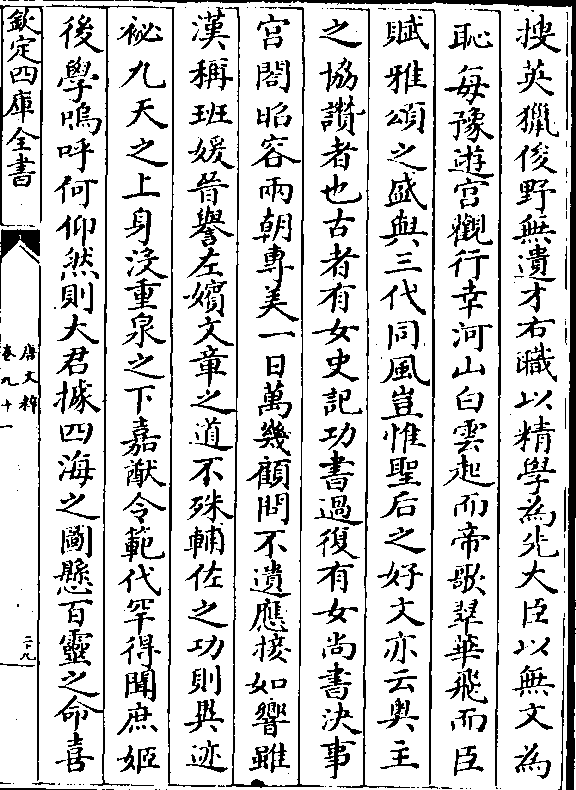 搜英獵俊野無遺才右職以精學為先大臣以無文為
恥每豫遊宮觀行幸河山白雲起而帝歌翠華飛而臣
賦雅頌之盛與三代同風豈惟聖后之好文亦云奥主
之協讃者也古者有女史記功書過復有女尚書決事
宫閤昭容兩朝專美一日萬幾顧問不遺應接如響雖
漢稱班媛晉譽左嬪文章之道不殊輔佐之功則異迹
祕九天之上身没重泉之下嘉猷令範代罕得聞庶姬
後學嗚呼何仰然則大君據四海之圖懸百靈之命喜
欽定四庫全書
唐文粹
卷九十一
二十九